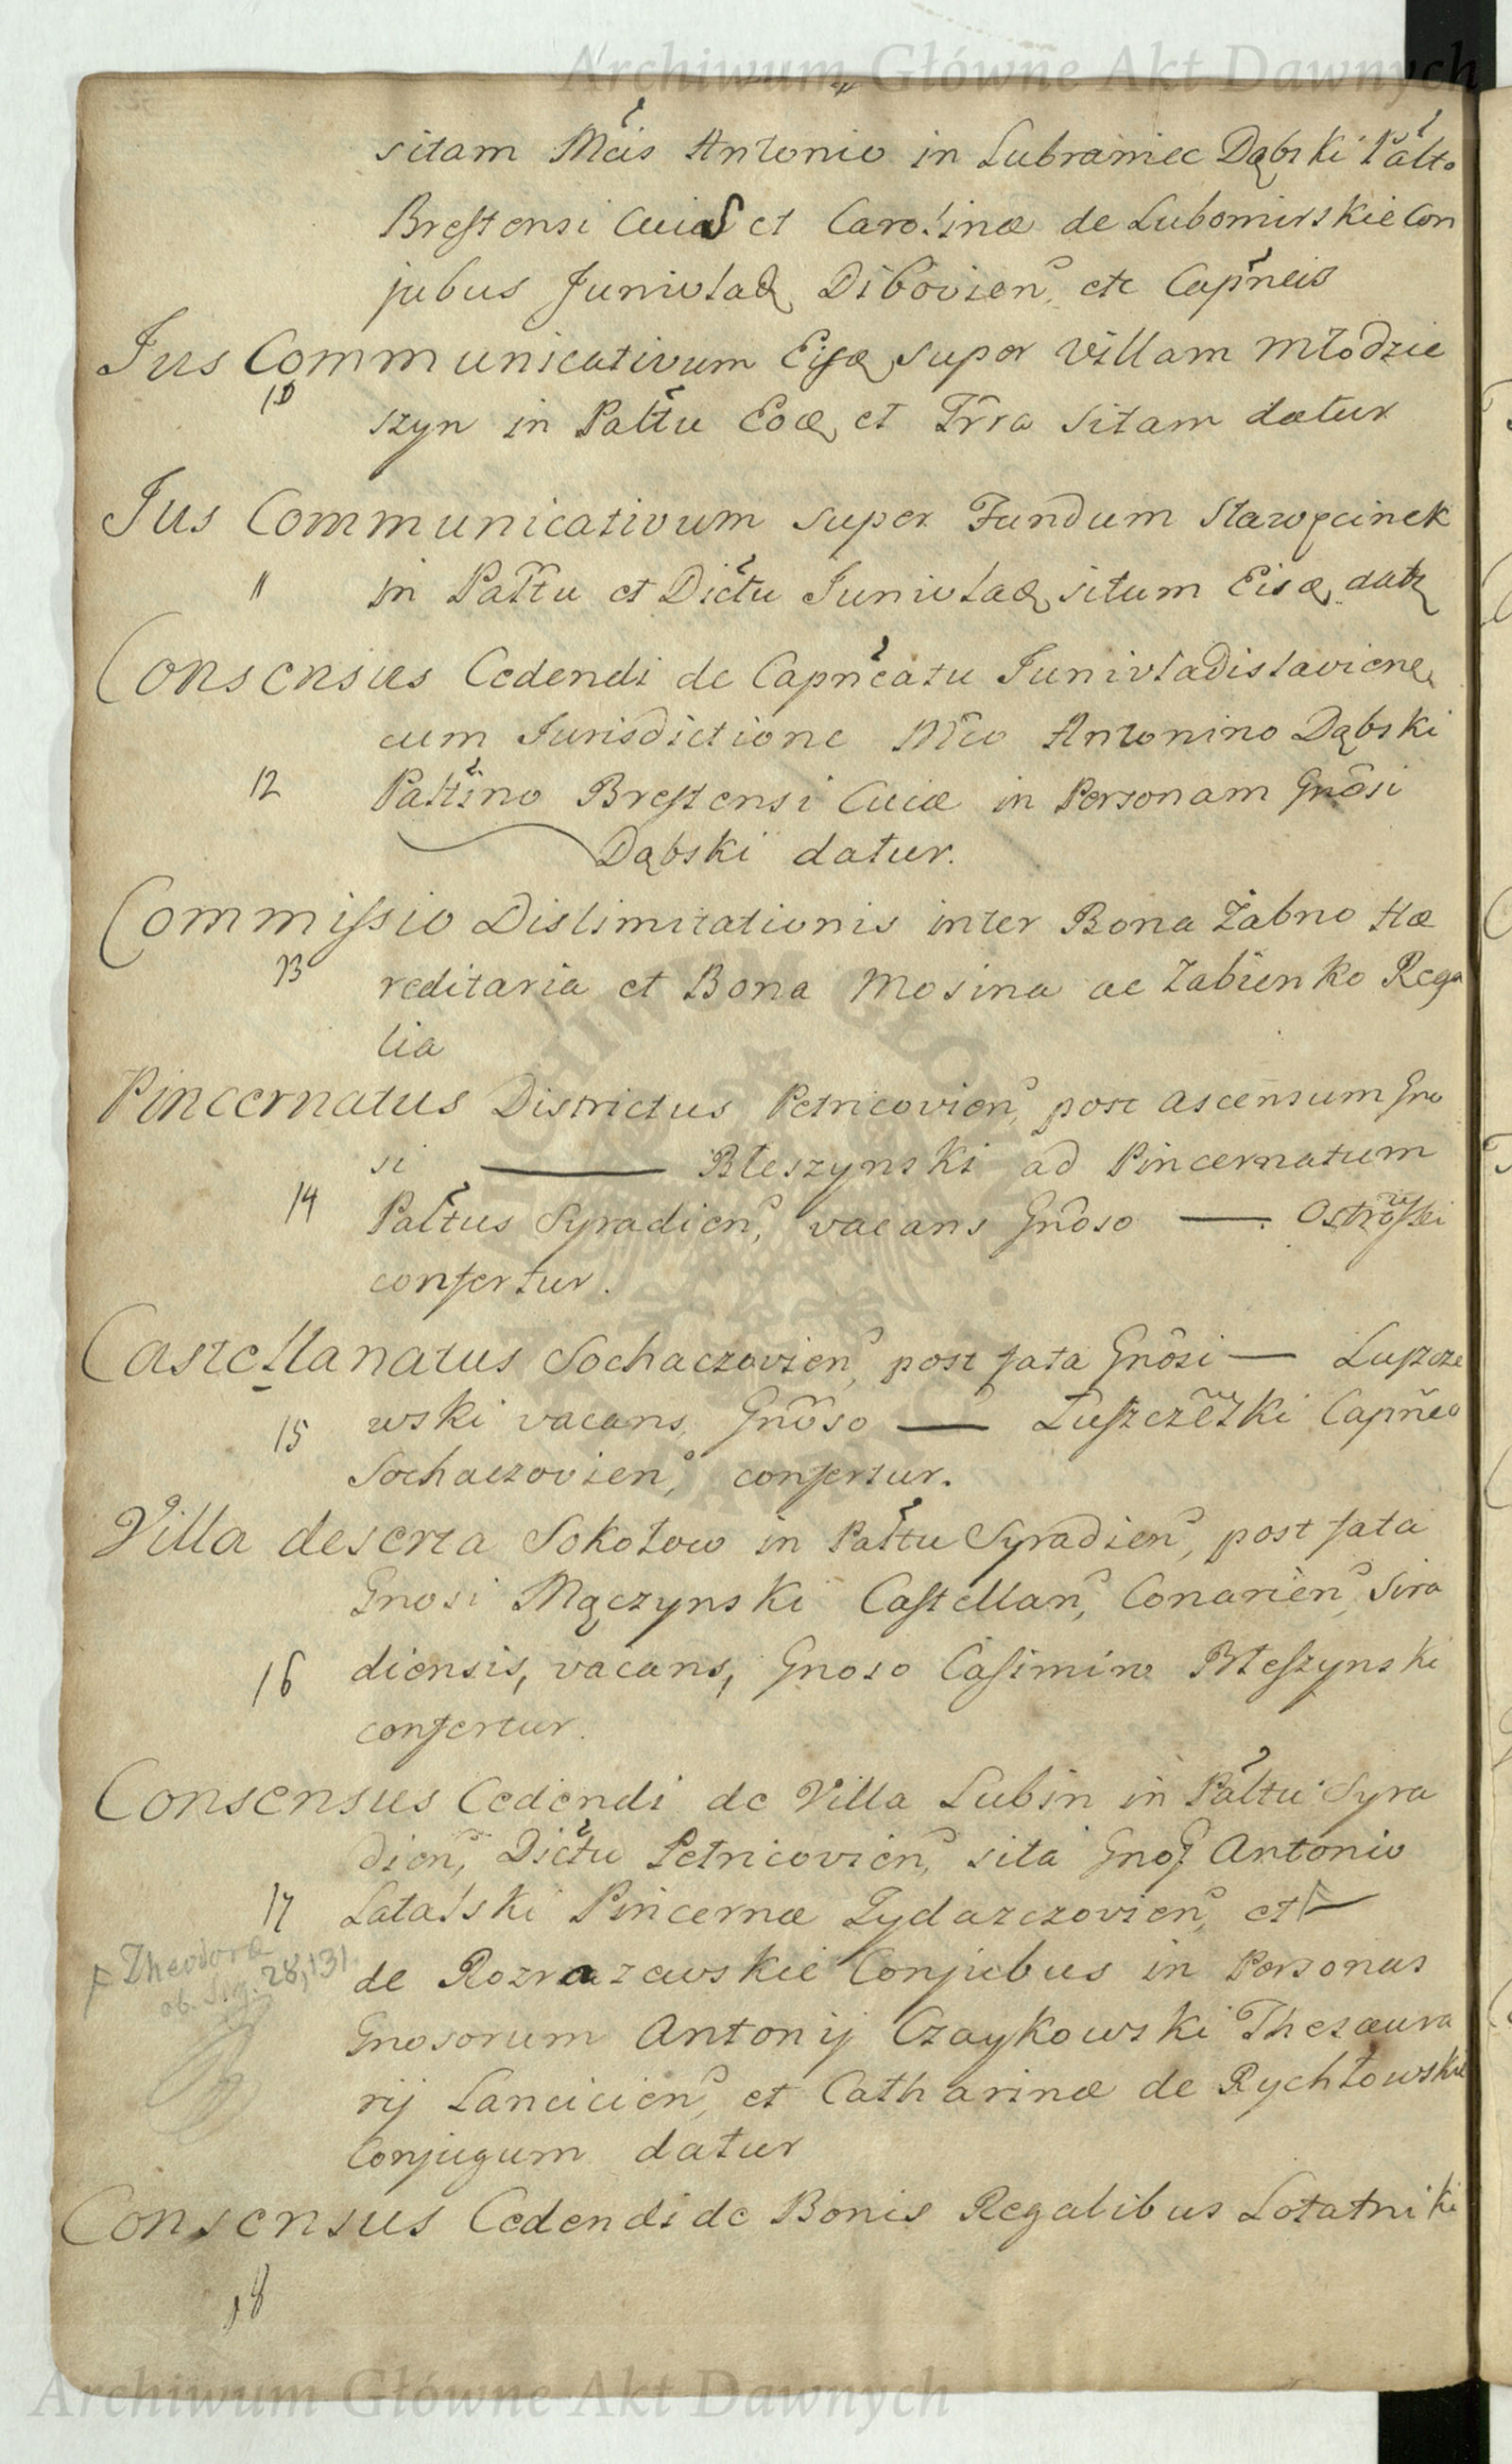 Archiwum Główne Akt Dawnych
sitam Mcis Antonio in Lubraniec Dąbski Palto
Brestensi Cuiae et Carolinæ de Lubomirskie Con
jubus Junivlad Dibovien, etc Capneis
Jus Communicativum Eisd super Villam Młodzie
10
szyn in Paltu Eod et Trra sitam datur
Jus Communicativum super Fundum Starogcinek
11 in Paltu et Dictu Junivlad situm Eisd datr
Consensus Cedendi de Capneatu Junivladislavien
cum Jurisdictione Mco Antonino Dąbski
12 Paltino Brestensi Cuiæ in Personam Gnosi
Dąbski datur.
Commissio Dislimitationis inter Bona Żabno Hæ
13 reditaria et Bona Mosina ac Żabienko Rega
lia
Pincernatus Districtus Petricovien, post ascensum Gno
si — Błeszynski ad Pincernatum
14 Paltus Syradien, vacans Gnoso —
confertur.
Castellanatus Sochaczovien, post fata Gnosi — Lupcze
15 wski vacans, Gnoso — Łuszczewski Capneo
Sochaczovien, confertur.
Villa deserta Sokołow in Paltu Syradien, post fata
Gnosi Mączynski Castellan, Conarien, Sira
16 diensis, vacans, Gnoso Casimiro Błeszynski
confertur.
Consensus Cedendi de Villa Lubin in Paltu Syra
dien, Dictu Petricovien, sita Gnos Antonio
17 Latalski Pincernæ Zydaczovien, et
F Theodora
ob. Sig. 28, 131.
de Rozrazewskie Conjubus in Personas
Gnosorum Antonij Czaykowski Thesaura
rij Lancicien, et Catharinæ de Rychłowskie
Conjugum datur
Consensus Cedendi de Bonis Regalibus Lotatniki
18
Archiwum Główne Akt Dawnych